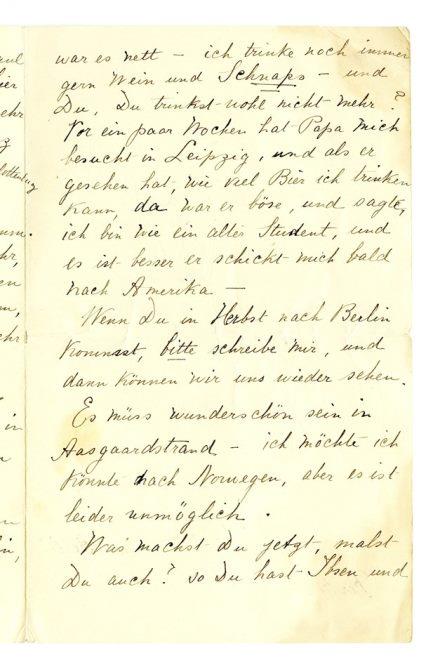 war es nett – ich trinke noch immer
gern Wein und Schnaps – und
Du, Du trinkst wohl nicht mehr?
Vor ein paar Wochen hat Papa mich
besucht in Leipzig, und als er
gesehen hat, wie viel Bier ich trinken
kann, da war er böse, und sagte,
ich bin wie ein alter Student, und
es ist besser er schickt mich bald
nach Amerika –
Wenn Du in Herbst nach Berlin
kommst, bitte schreibe mir, und
dann können wir uns wieder sehen.
Es müss wunderschön sein in
Aasgaardstrand – ich möchte ich
könnte nach Norwegen, aber es ist
leider unmöglich.
Was machst Du jetzt, malst
Du auch? so Du hast Ibsen und